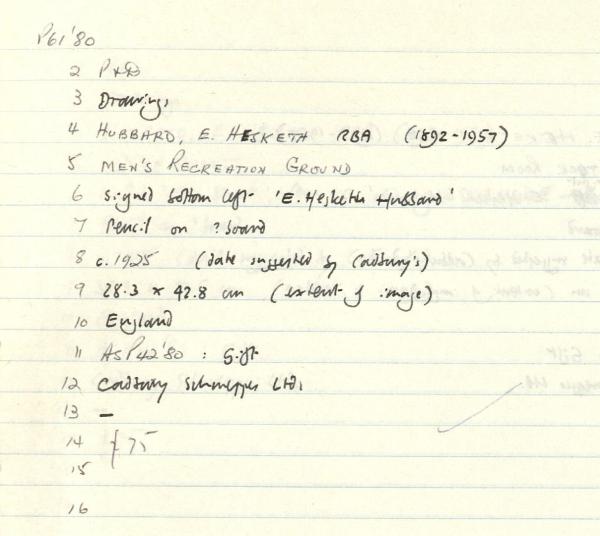 P61'80
2 P&D
3 Drawings
4 HUBBARD, E. HESKETH RBA (1892-1957)
5 MEN'S RECREATION GROUND
6 signed bottom left 'E. Hesketh Hubbard'
7 Pencil on ? board
8 c. 1925 (date suggested by Cadbury's)
9 28.3 x 42.8 cm (extent of image)
10 England
11 AsP42'80 : Gift
12 Cadbury Schweppes Ltd.
13 –
14 £75
15
16